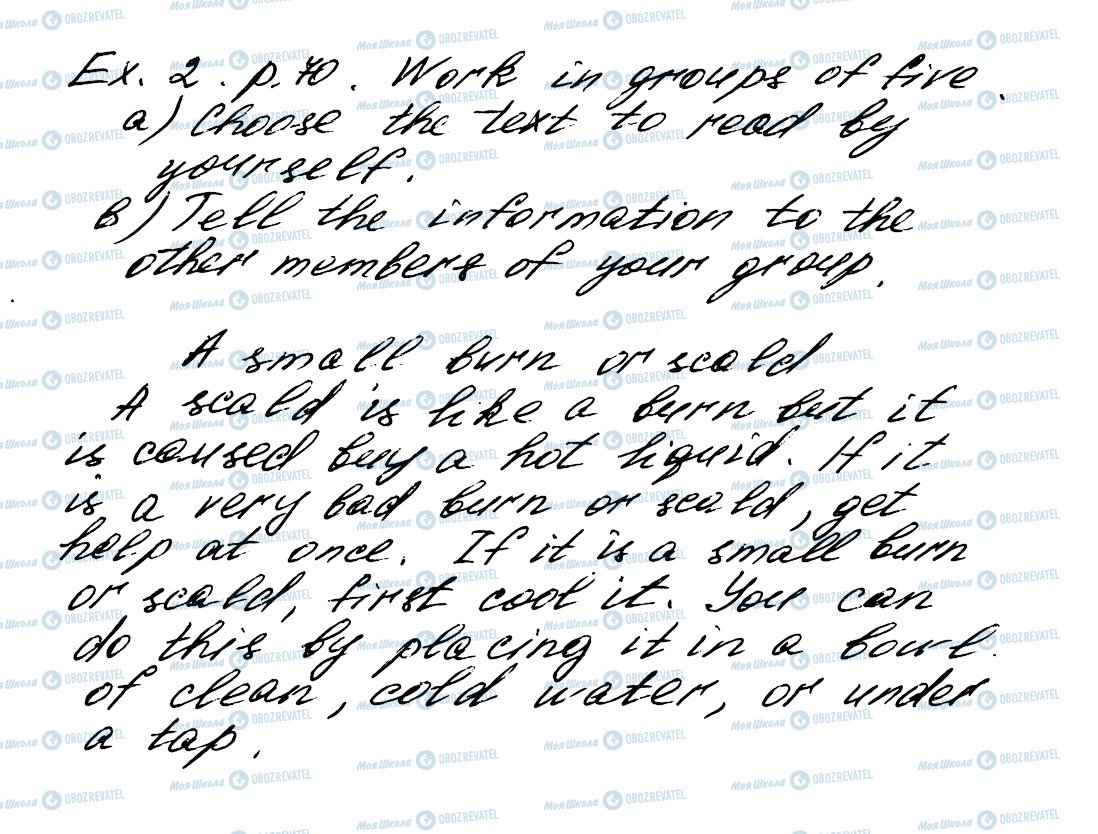 Ex. 2. p. 70. Work in groups of five.
a) Choose the text to read by
yourself.
b) Tell the information to the
other members of your group.
A small burn or scald
A scald is like a burn but it
is caused buy a hot liquid. If it
is a very bad burn or scald, get
help at once. If it is a small burn
or scald, first cool it. You can
do this by placing it in a bowl
of clean, cold water, or under
a tap.
Моя Школа OBOZREVATEL